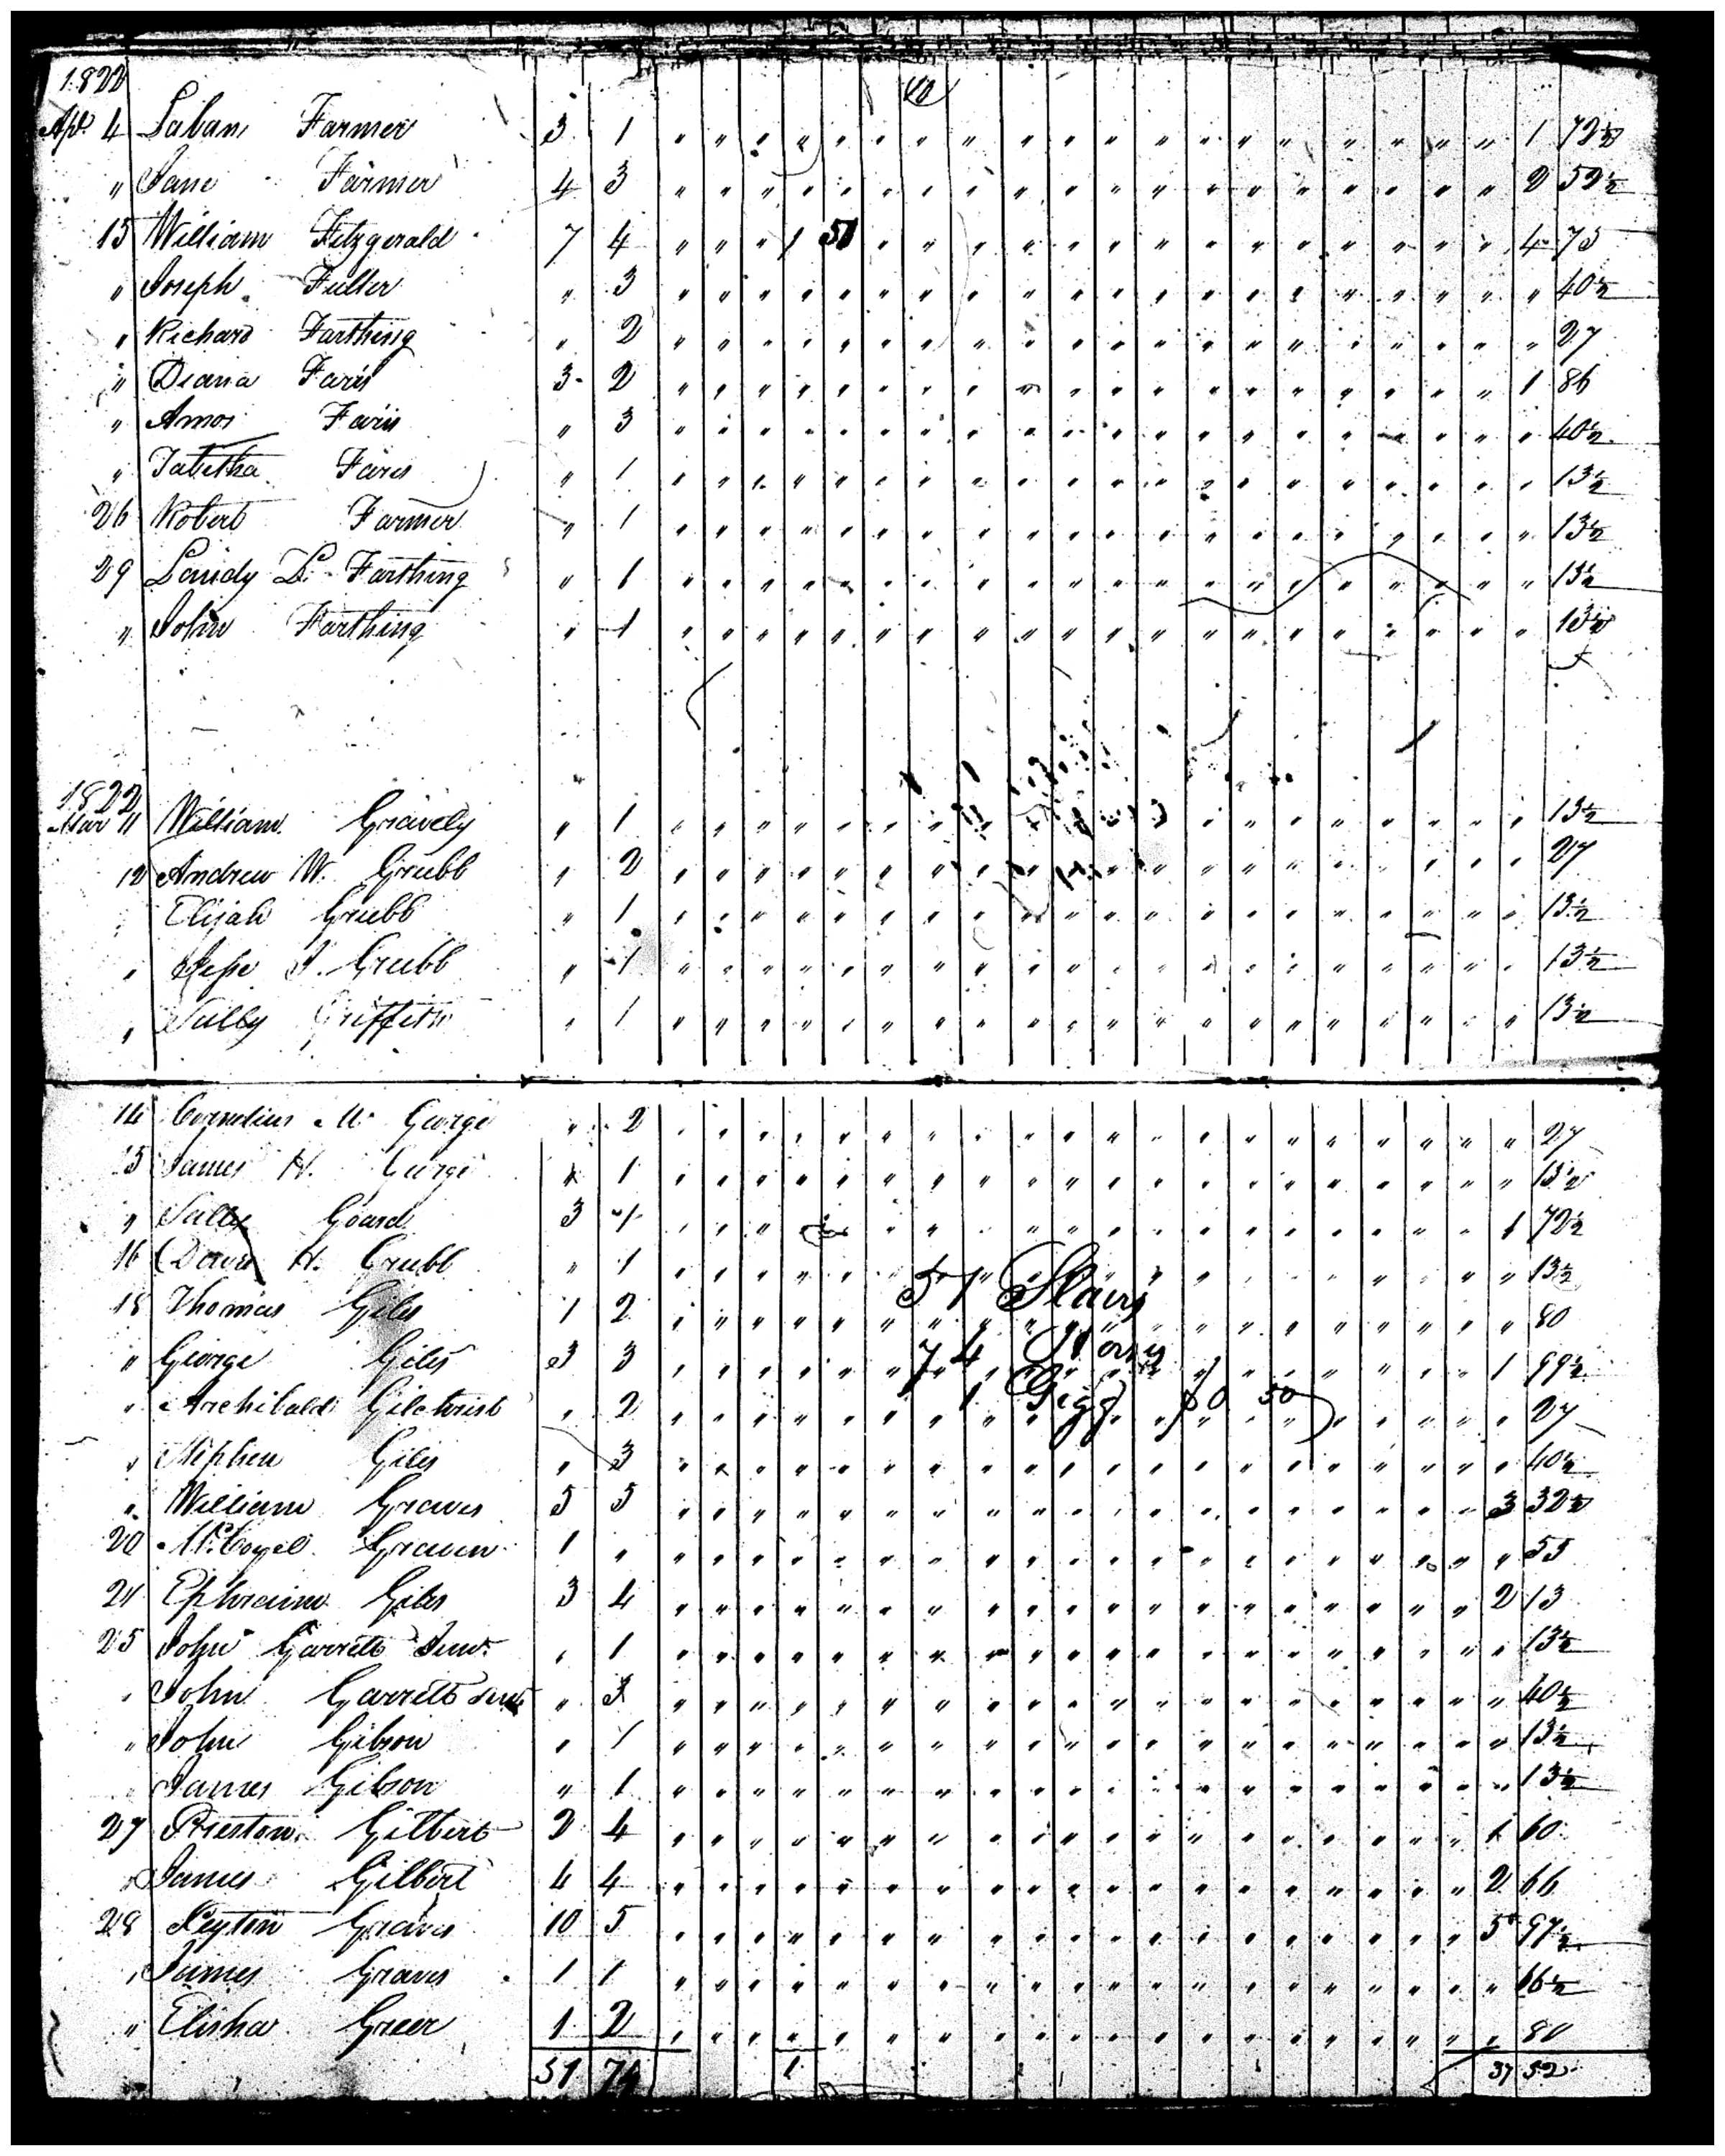 10
1822
Apl. 4 Laban Farmer 3 1 " " " " " " " " " " " " " " " " " " " 1 72½
" Jane Farmer 4 3 " " " " " " " " " " " " " " " " " " " 2 52½
15 William Fitzgerald 7 4 " " " 1 50 " " " " " " " " " " " " " " 4 75
" Joseph Fuller " 3 " " " " " " " " " " " " " " " " " " " " 40½
" Richard Farthing " 2 " " " " " " " " " " " " " " " " " " " " 27
" Diana Faris 3 2 " " " " " " " " " " " " " " " " " " " 1 86
" Amos Faris " 3 " " " " " " " " " " " " " " " " " " " " 40½
" Tabitha Faris " 1 " " " " " " " " " " " " " " " " " " " " 13½
26 Robert Farmer " 1 " " " " " " " " " " " " " " " " " " " " 13½
29 L. Farthing " 1 " " " " " " " " " " " " " " " " " " " " 13½
" John Farthing " 1 " " " " " " " " " " " " " " " " " " " " 13½
1822
Mar 11 William Gravely " 1 " " " " " " " " " " " " " " " " " " " " 13½
12 Andrew W. Grubb " 2 " " " " " " " " " " " " " " " " " " " " 27
" Elijah Grubb " 1 " " " " " " " " " " " " " " " " " " " " 13½
" Jesse J. Grubb " 1 " " " " " " " " " " " " " " " " " " " " 13½
" Sally Griffith " 1 " " " " " " " " " " " " " " " " " " " " 13½
14 Cornelius M. George " 2 " " " " " " " " " " " " " " " " " " " " 27
15 James H. George " 1 " " " " " " " " " " " " " " " " " " " " 13½
" Sally Goard 3 1 " " " " " " " " " " " " " " " " " " 1 72½
16 David H. Grubb " 1 " " " " " " " " " " " " " " " " " " " " 13½
57 Slaves
18 Thomas Giles 1 2 " " " " " " " " " " " " " " " " " " " " 80
74 Horses
" George Giles 3 3 " " " " " " " " " " " " " " " " " " " 1 99½
1 Gigg $0 50
" Archibald Gilchrist " 2 " " " " " " " " " " " " " " " " " " " " 27
" Stephen Giles " 3 " " " " " " " " " " " " " " " " " " " " 40½
" William Graves 5 5 " " " " " " " " " " " " " " " " " " " 3 32½
20 Graven 1 " " " " " " " " " " " " " " " " " " " " " 53
24 Ephraim Giles 3 4 " " " " " " " " " " " " " " " " " " " 2 13
25 John Garrett Junr. " 1 " " " " " " " " " " " " " " " " " " " " 13½
" John Garrett " 3 " " " " " " " " " " " " " " " " " " " " 40½
" John Gibson " 1 " " " " " " " " " " " " " " " " " " " " 13½
" James Gibson " 1 " " " " " " " " " " " " " " " " " " " " 13½
27 Preston Gilbert 2 4 " " " " " " " " " " " " " " " " " " " 1 60
" James Gilbert 4 4 " " " " " " " " " " " " " " " " " " " 2 66
28 Peyton Graves 10 5 " " " " " " " " " " " " " " " " " " " 5 97½
" James Graves 1 1 " " " " " " " " " " " " " " " " " " " " 66½
" Elisha Greer 1 2 " " " " " " " " " " " " " " " " " " " " 80
51 74 1 37 52